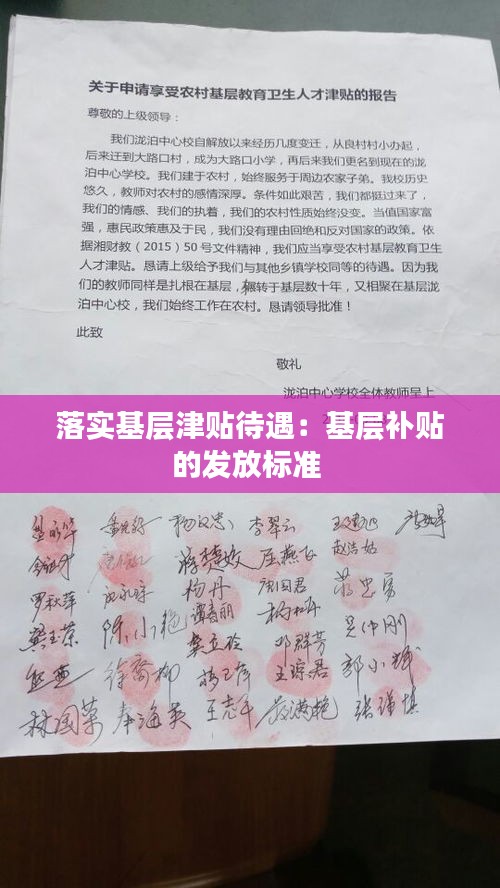 关于申请享受农村基层教育卫生人才津贴的报告
尊敬的上级领导：
我们泷泊中心校自解放以来经历几度变迁，从良村村小办起，
后来迁到大路口村，成为大路口小学，再后来我们更名到现在的泷
泊中心学校。我们建于农村，始终服务于周边农家子弟。我校历史
悠久，教师对农村的感情深厚。条件如此艰苦，我们都挺过来了，
我们的情感、我们的执着，我们的农村性质始终没变。当值国家富
强，惠民政策惠及于民，我们没有理由回绝和反对国家的政策。依
据湘财教（2015）50 号文件精神，我们应当享受农村基层教育卫生
人才津贴。恳请上级给予我们与其他乡镇学校同等的待遇。因为我
们的教师同样是扎根在基层，辗转于基层数十年，又相聚在基层泷
泊中心校，我们始终工作在农村。恳请领导批准！
此致
敬礼
泷泊中心学校全体教师呈上
落实基层津贴待遇：基层补贴
的发放标准
李翠云
杨丹
罗秋萍 谭春丽
陈小艳 吴仲刚
邓群芳
徐乔柳 王琼君 郭小辉
林国荣 奉海英 王志平 蒋满艳 张谨慎